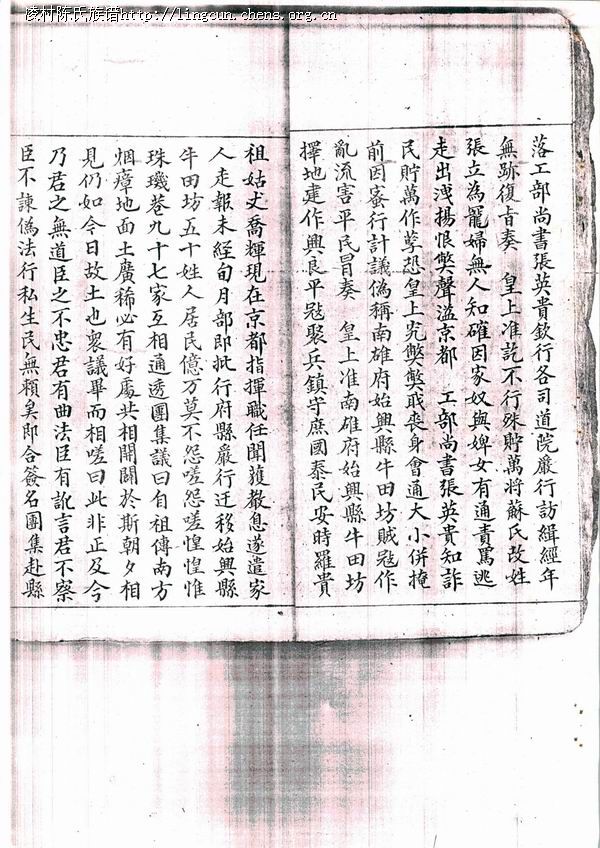 凌村陈氏族谱http://lingcun.chens.org.cn
落工部尚書張英貴欽行各司道院嚴行訪緝經年
無跡復旨奏 皇上准訖不行殊貯萬將蘇氏改姓
張立為寵婦無人知確因家奴與婢女有通責罵逃
走出洩揚恨獘聲溢京都 工部尚書張英貴知詐
民貯萬作孽恐皇上究獘獘戕喪身會通大小併掩
前因密行計議偽稱南雄府始興縣牛田坊賊冦作
亂流害平民冒奏 皇上准南雄府始興縣牛田坊
擇地建作興良平冦聚兵鎮守庶國泰民安時羅貴
祖姑丈喬輝現在京都指揮職任聞獲救息遂遣家
人走報未經旬月部即批行府縣嚴行迁移始興縣
牛田坊五十姓人居民億万莫不怨嗟怨嗟惶惶惟
珠璣巷九十七家互相通透團集議曰自祖傳南方
烟瘴地面土廣稀必有好處共相開闢於斯朝夕相
見仍如今日故土也衆議畢而相嗟曰此非正及今
乃君之無道臣之不忠君有曲法臣有訛言君不察
臣不諫偽法行私生民無賴矣即合簽名團集赴縣